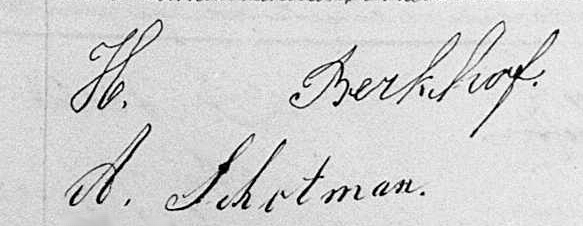 H. Berkhof.
A. Schotman.